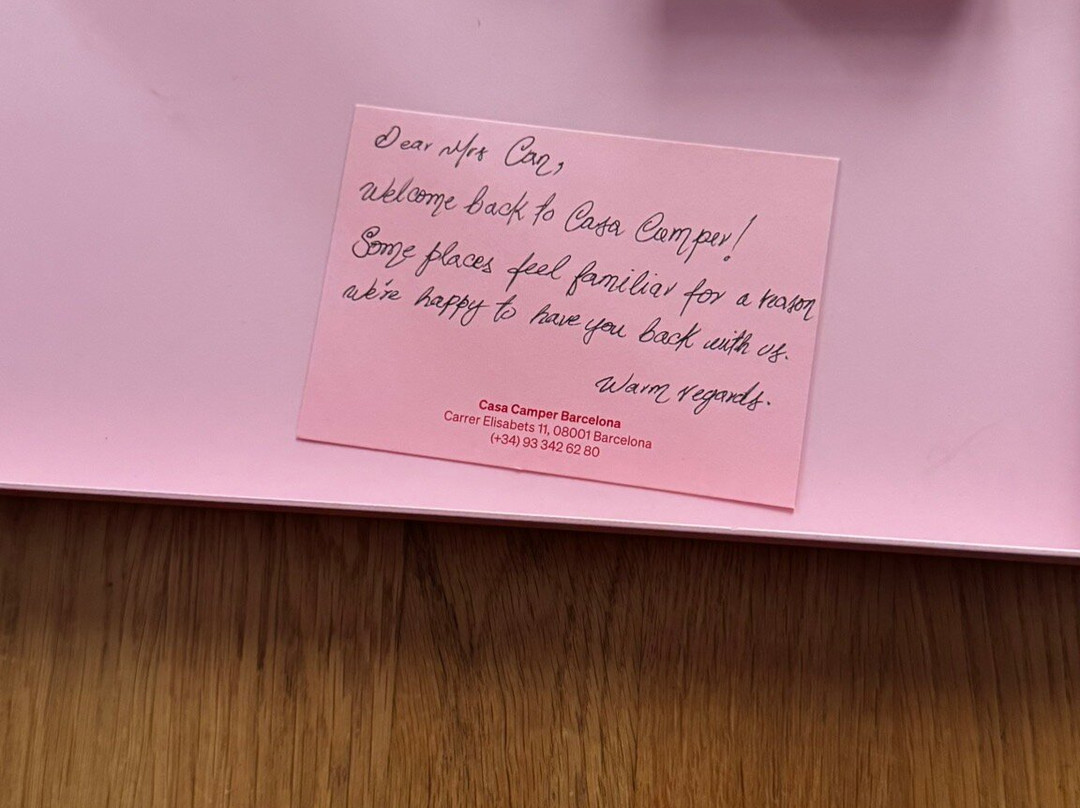 Dear Mrs Can,
Welcome back to Casa Camper!
Some places feel familiar for a reason
we're happy to have you back with us.
Warm regards.
Casa Camper Barcelona
Carrer Elisabets 11, 08001 Barcelona
(+34) 93 342 62 80